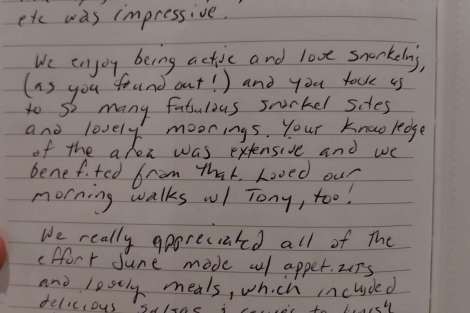 etc was impressive.
We enjoy being active and love snorkeling,
(as you found out!) and you took us
to so many fabulous snorkel sites
and lovely moorings. Your knowledge
of the area was extensive and we
benefited from that. Loved our
morning walks w/ Tony, too!
We really appreciated all of the
effort June made w/ appetizers
and lovely meals, which included
delicious